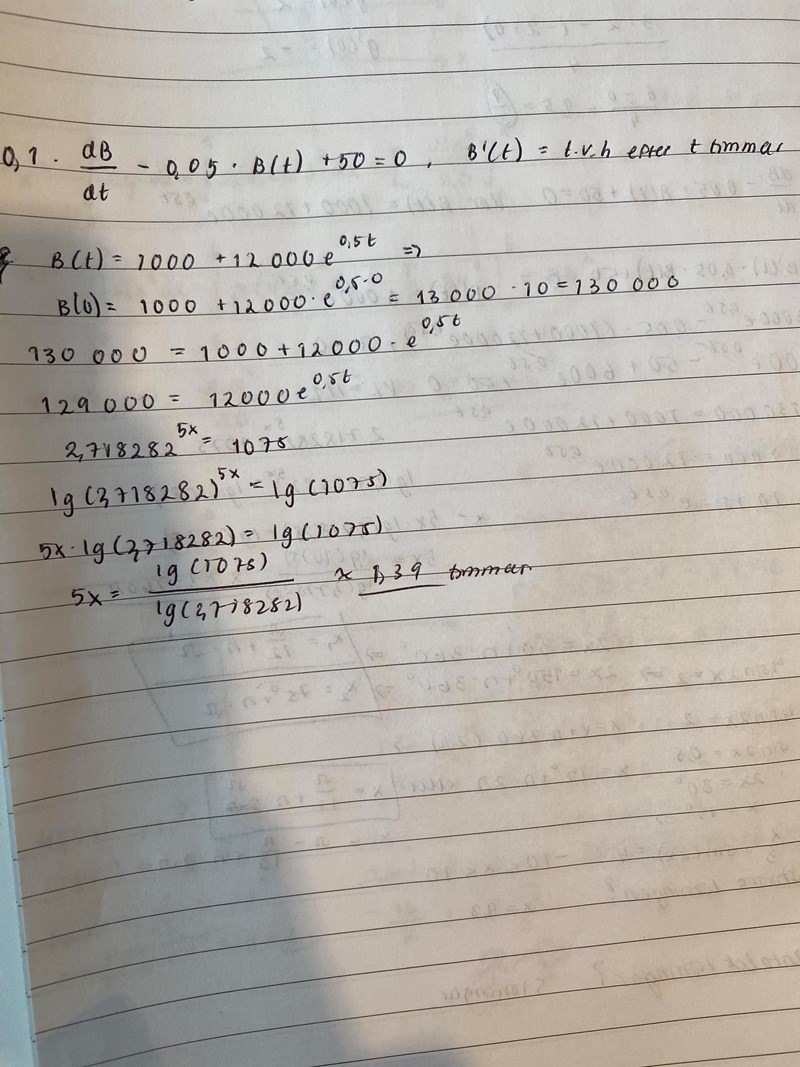 0,1 · dB/dt - 0,05 · B(t) + 50 = 0, B'(t) = t.v.h efter t timmar
B(t) = 1000 + 12 000 e^0,5t ⇒
B(0) = 1000 + 12000 · e^0,5·0 = 13 000 · 10 = 130 000
130 000 = 1000 + 12000 · e^0,5t
129 000 = 12000 e^0,5t
2,718282^5x = 1075
lg (2,718282)^5x = lg (1075)
5x · lg (2,718282) = lg (1075)
5x = lg (1075) / lg (2,718282) x 1,39 timmar